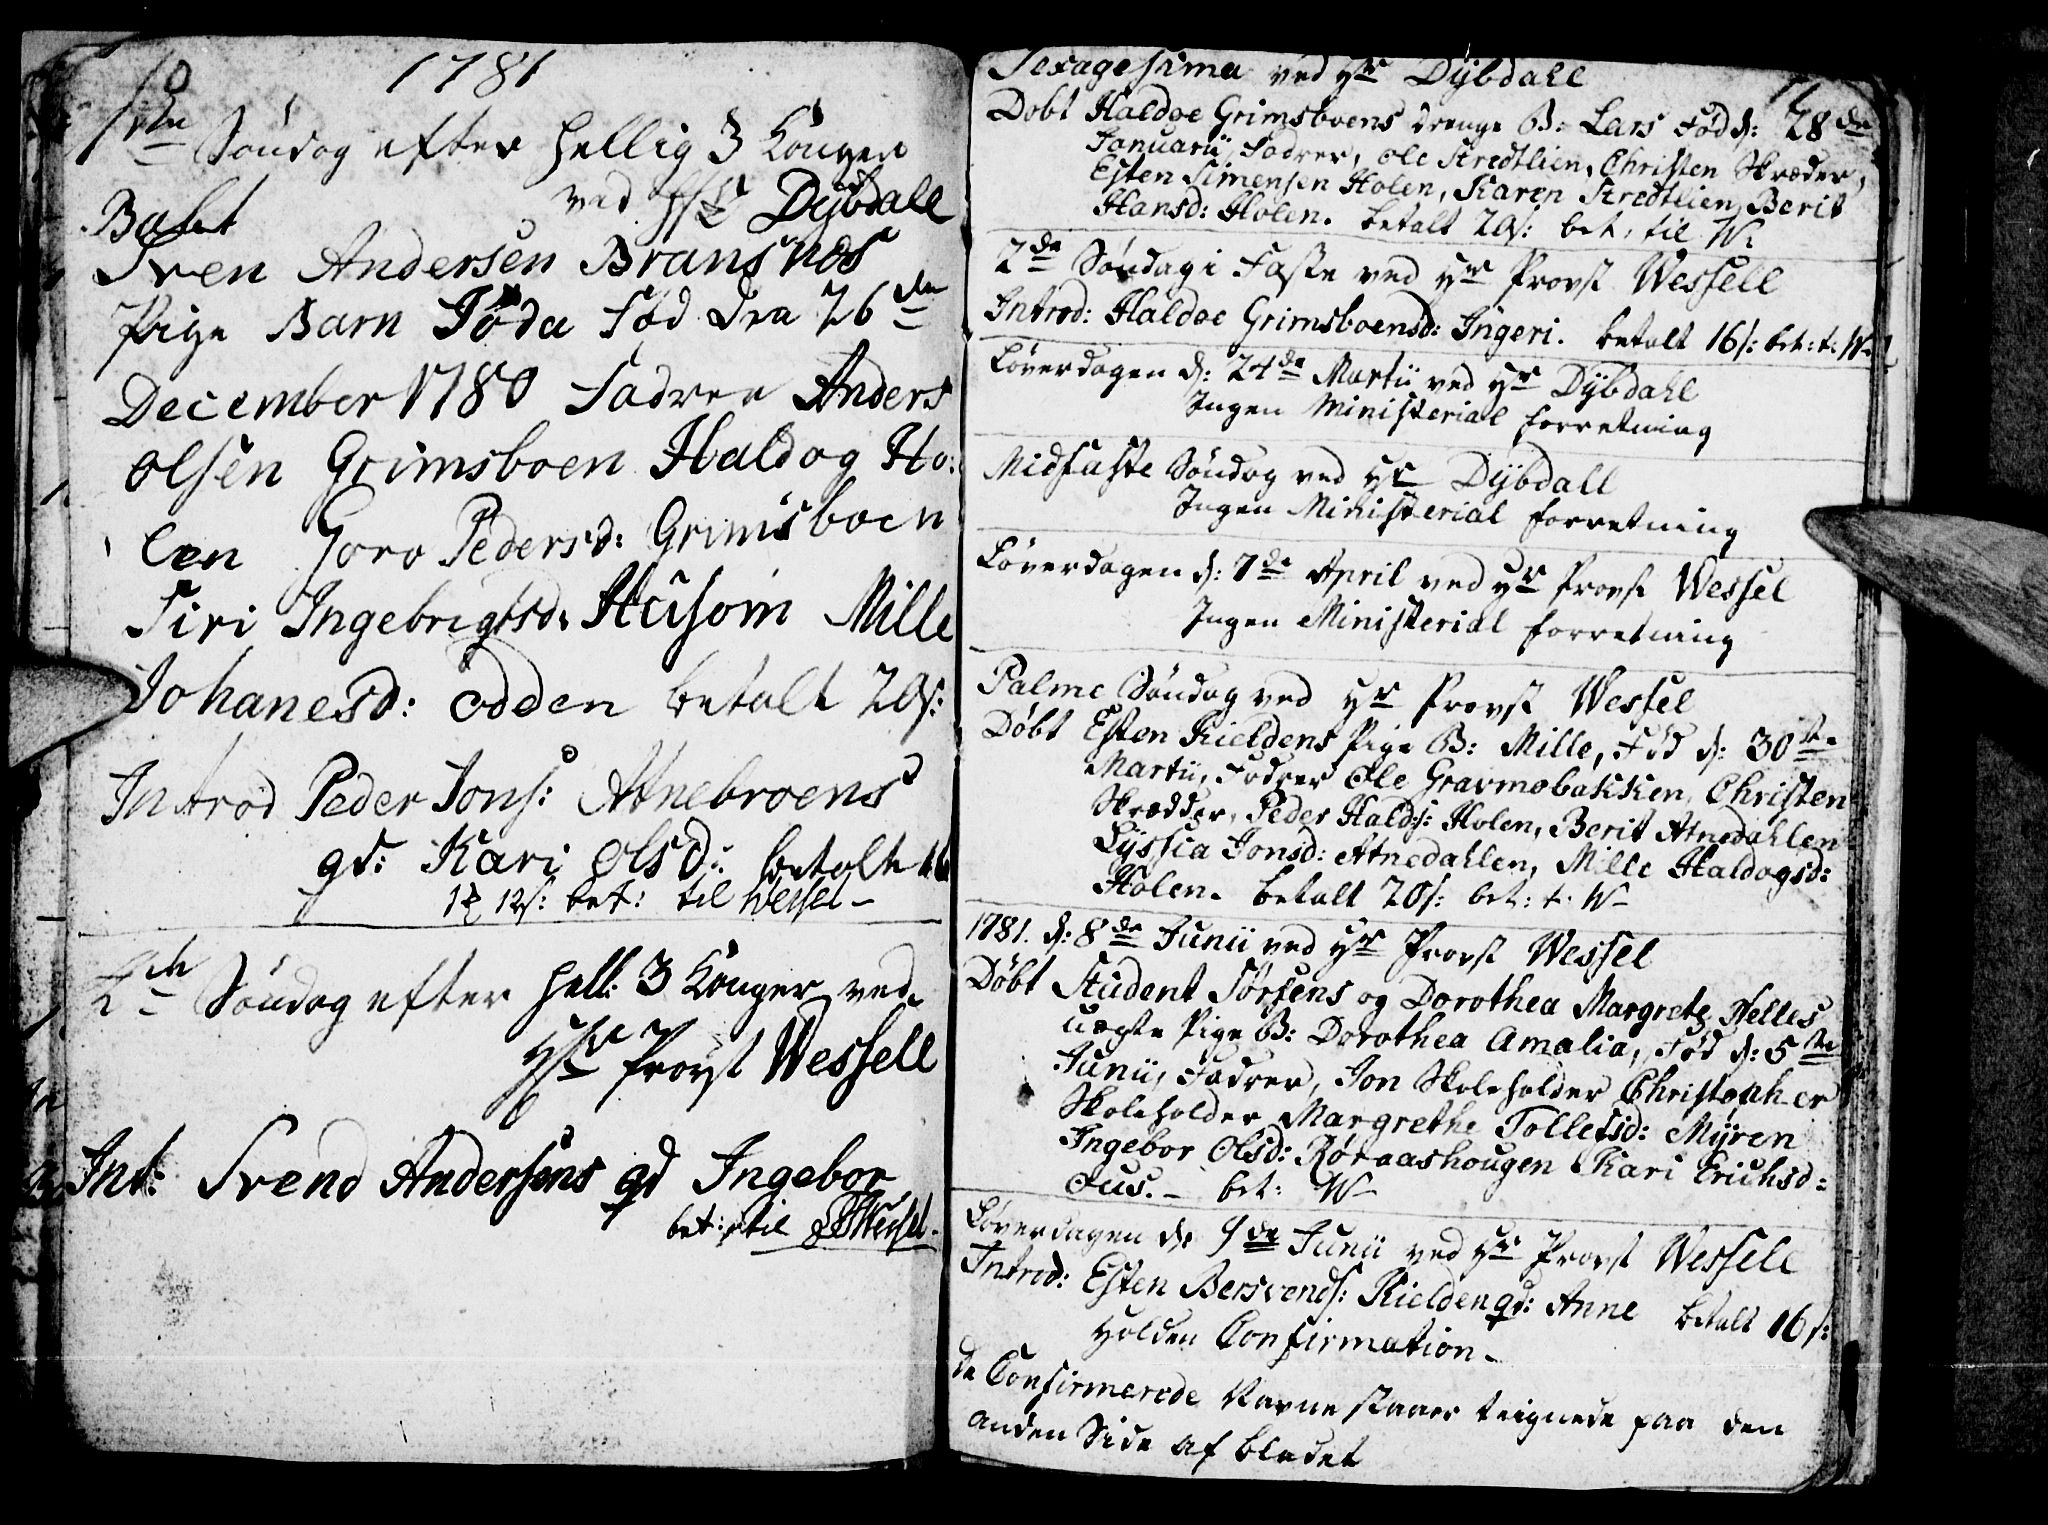 10
1781
1ste Søndag efter Hellig 3 Konger
ved Hr Dybdall
Babt
Sven Andersen Bransnes
Pige Barn Føda Fød den 26de
December 1780 Fadree Anders
olsen Grimsboen Haldog Ho:
len Goro Pedersd: Grimsboen
Siri Ingebrigtsd: Husom Mille
Johanesd: odden betalt 20s:
Introd Peder Jons: Atnebroens
qd: Kari olsd: betalt
12s: bet: til Wessel –
Søndag efter Hell: 3 Konger ved
Hr Provst Wessell
Int: Svend Andersens qd Ingebor
bet: til Wessel.
11
Sexagesima ved Hr Dybdahl
Dobt Haldoe Grimsboens drenge B: Lars Fød d: 28de
Januarii, Fadrer, Ole Stredtlien, Christen Skræder,
Esten Simensen Holen, Karen Stredtlien, Berit
Hansd: Holen. betalt 20s: bet: til W.
2de Søndag i Faste ved Hr Provst Wessell
Introd: Haldoe Grimsboensd: Ingeri. betalt 16s: bet: t: W.
Løverdagen d: 24de Martii ved Hr Dybdahl
Ingen Ministerial forretning
Midfaste Søndag ved Hr Dybdall
Ingen Ministerial forretning
Løverdagen d: 7de April ved Hr Provst Wessel
Ingen Ministerial forretning
Palme Søndag ved Hr Provst Wessel
Døbt Esten Kieldens Pige B: Mille, Fød d: 30te
Martii, Fadrer Ole Gravmobakken, Christen
Skrædder, Peder Halds: Holen, Berit Atnedahlen
Lyssia Jonsd: Atnedahlen, Mille Haldogsd:
Holen. betalt 20s: bet: t: W–
1781. d: 8de Junii ved Hr Provst Wessel
Døbt Student Sørsens og Dorothea Margrete Helles
uægte Pige B: Dorothea Amalia, Fød d: 5te
Junii, Fadrer, Jon Skoleholder Christopher
Skoleholder, Margrethe Tollefsd: Myren
Ingebor Olsd: Røraashougen Kari Erichsd:
Ous. – bet: W–
Løverdagen d: 9de Junii ved Hr Provst Wessell
Introd: Esten Bersvends: Kielden qd: Anne betalt 16s:
Holden Confirmation –
de Confirmerede Navne staaer teignede paa den
anden Side af bladet